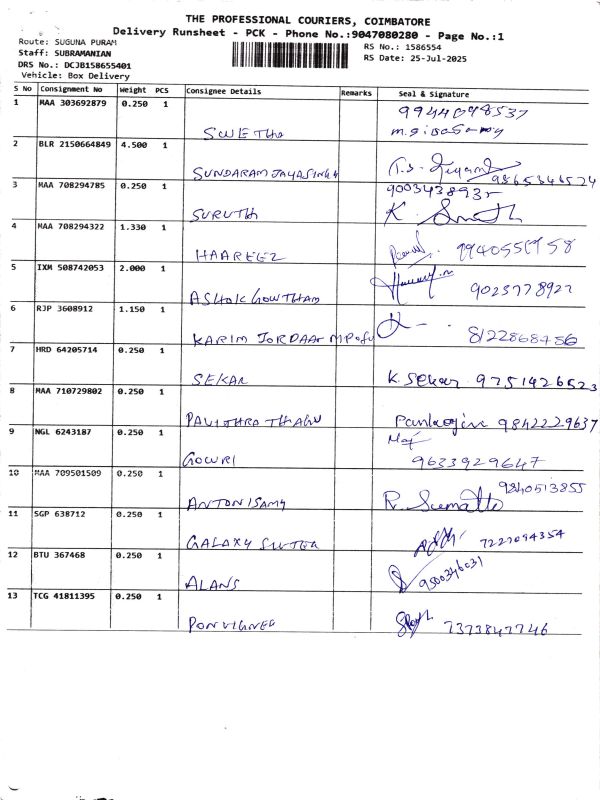 THE PROFESSIONAL COURIERS, COIMBATORE
Delivery Runsheet - PCK - Phone No.:9047080280 - Page No.:1
Route: SUGUNA PURAM
RS No.: 1586554
Staff: SUBRAMANIAN
RS Date: 25-Jul-2025
DRS No.: DCJB158655401
Vehicle: Box Delivery
S No Consignment No Weight PCS Consignee Details Remarks Seal & Signature
1 MAA 303692879 0.250 1 9944098537
SWETHA
2 BLR 2150664849 4.500 1
SUNDARAM JAYASINGH 9865346524
3 MAA 708294785 0.250 1 9003438935
SURUTH K.
4 MAA 708294322 1.330 1
HAAREEZ 9940551958
5 IXM 508742053 2.000 1
ASHOK GOWTHAM 9023778922
6 RJP 3608912 1.150 1
KARIM JORDAAN 8122868786
7 HRD 64205714 0.250 1
SEKAR K. Sekar 9751426523
8 MAA 710729802 0.250 1
PAVITHRA THAGU 9842229637
9 NGL 6243187 0.250 1
GOWRI 9633929647
10 MAA 709501509 0.250 1 9240513855
ANTONISAMY R.
11 SGP 638712 0.250 1
GALAXY 7227094354
12 BTU 367468 0.250 1
ALANS 9500346031
13 TCG 41811395 0.250 1
PONVIGNEE 7373847746